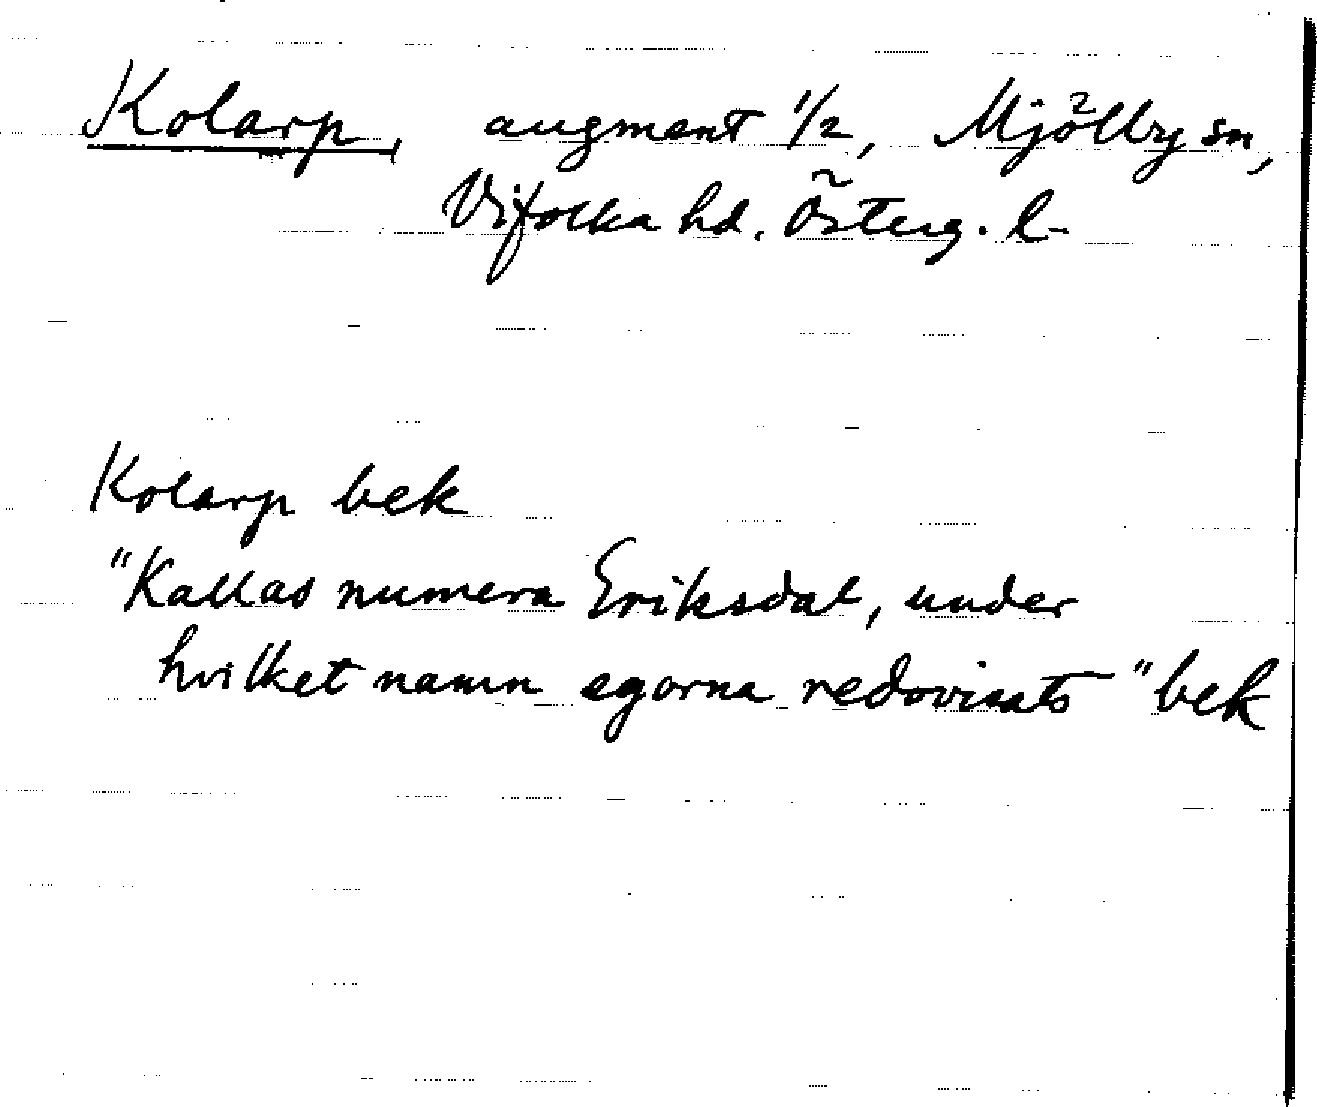 Kolarp, augment 1/2, Mjölby sn,
Vifolka hd. Österg. l-
Kolarp bek
"Kallas numera Eriksdal, under
hvilket namn egorna redovisats" bek